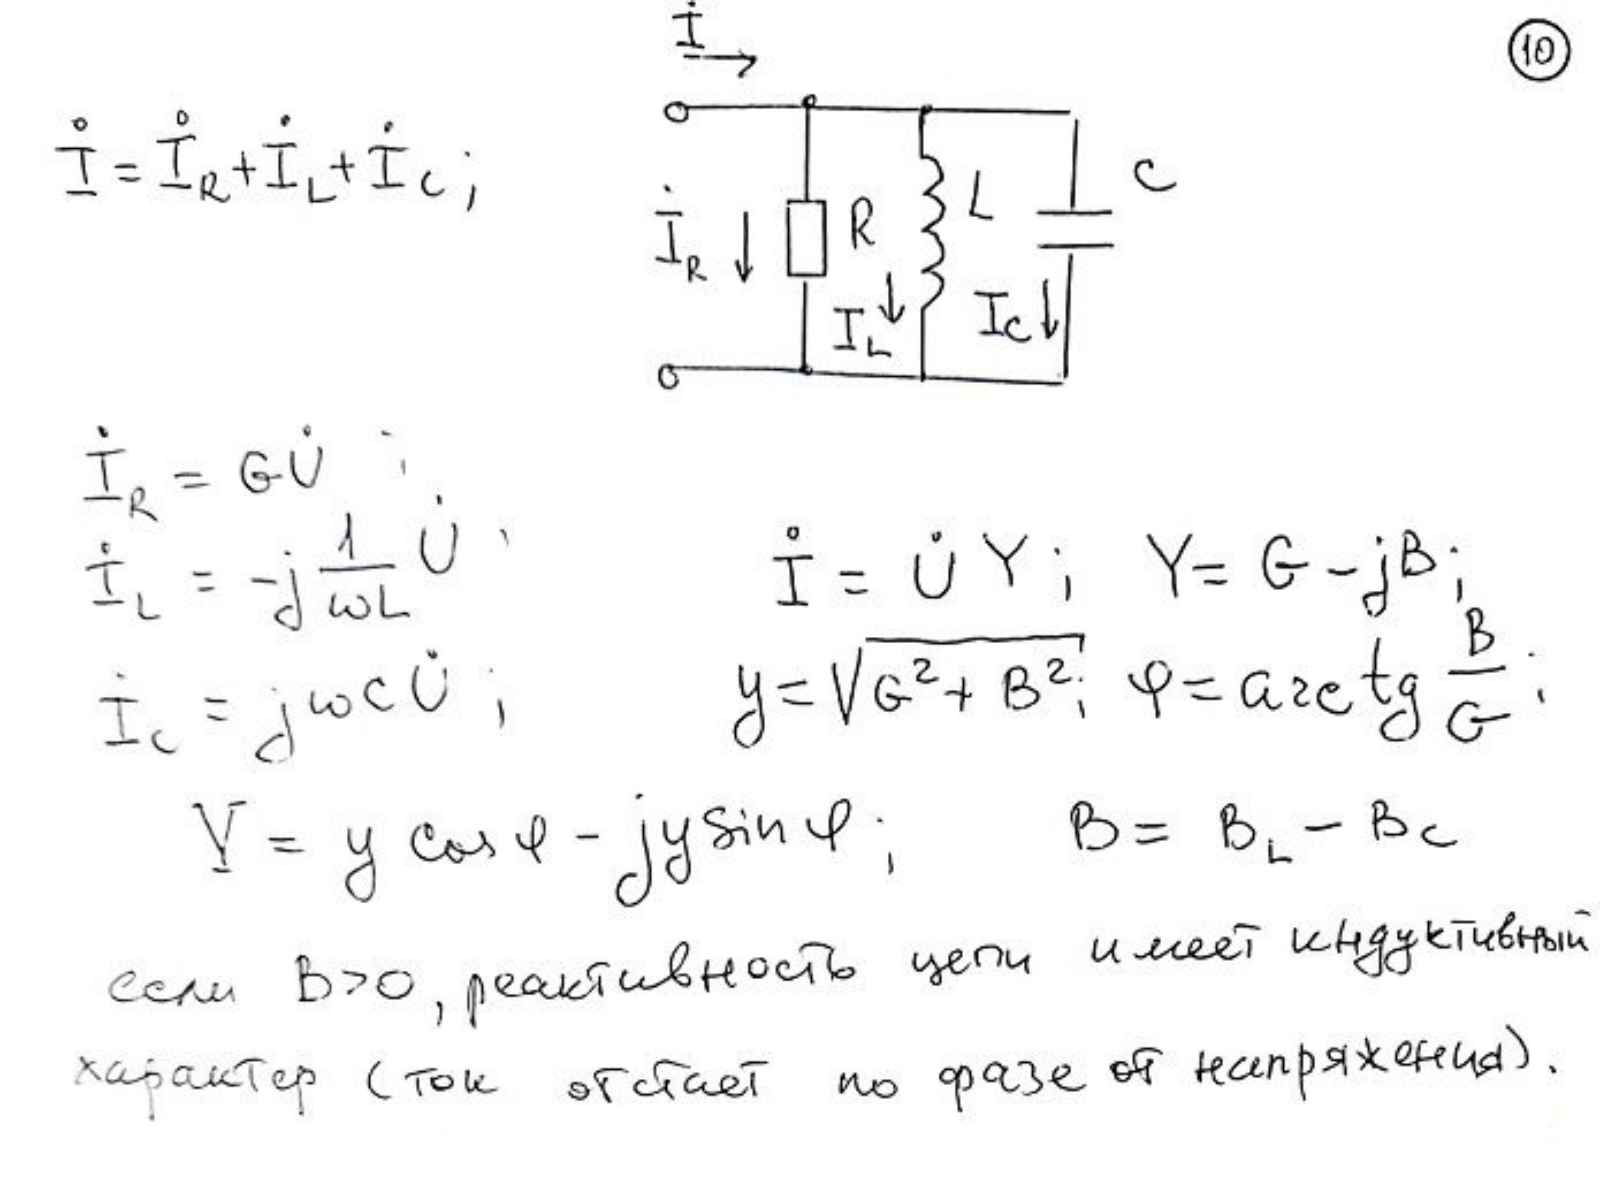 İ
10
İ = İ_R + İ_L + İ_C ;
İ_R R L C
I_L I_C
İ_R = GU̇ ;
İ_L = -j 1/ωL U̇ ;
İ = U̇ Y ; Y = G - jB ;
İ_C = jωCU̇ ;
y = √G² + B² ; φ = arctg B/G ;
Y = y cos φ - jy sin φ ; B = B_L - B_C
если B>0, реактивность цепи имеет индуктивный
характер (ток отстает по фазе от напряжения).